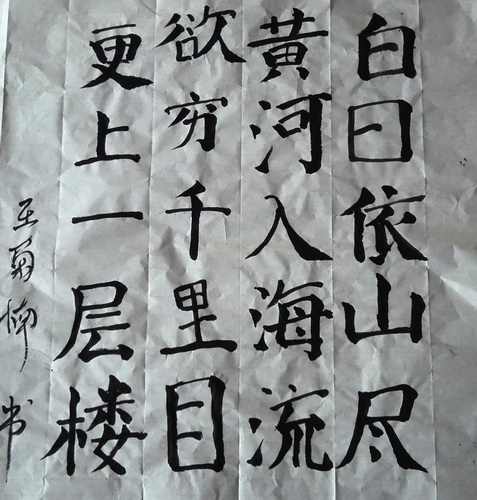 白日依山尽
黄河入海流
欲穷千里目
更上一层楼
王菊柳书